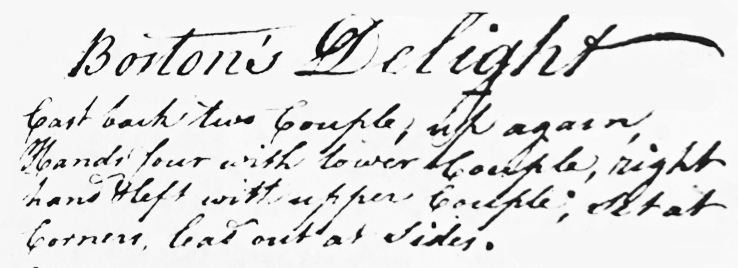 Boston's Delight
Cast back two Couple, up again,
Hands four with lower Couple, right
hand & left with upper Couple, Set at
Corners, lead out at Sides.